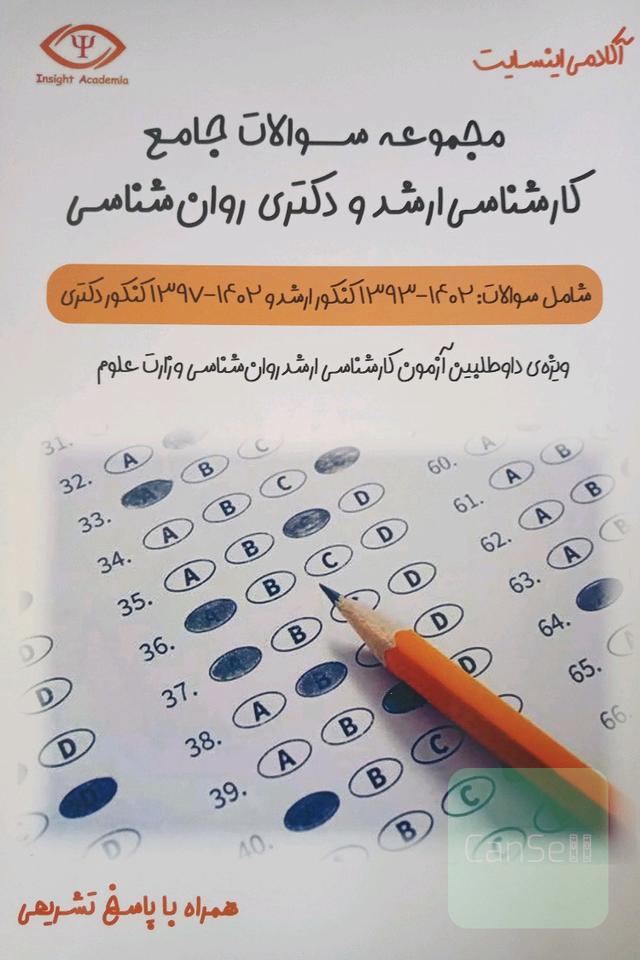 Insight Academia
آکادمی اینسایت
مجموعه سوالات جامع
کارشناسی ارشد و دکتری روان‌شناسی
شامل سوالات: ۱۴۰۲-۱۳۹۳ کنکور ارشد و ۱۴۰۲-۱۳۹۷ کنکور دکتری
ویژه‌ی داوطلبین آزمون کارشناسی ارشد روان‌شناسی وزارت علوم
31.
32. A B C
33. A B C D
34. A B C D
35. A B C D
36. A B C D
37. A B D
38. A B D
39. A B C
40. B C
60. A
61. A B
62. A B
63. A B
64. A
65.
66.
D
D
D
D
CanSell
همراه با پاسخ تشریحی